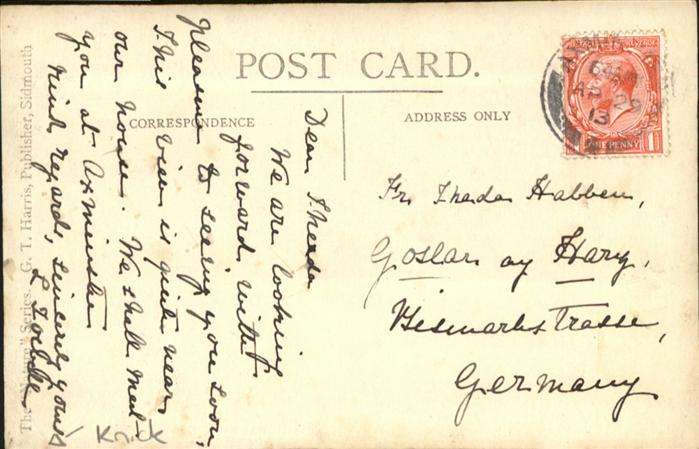 POST CARD.
CORRESPONDENCE
ADDRESS ONLY
Dear Theda
We are looking
forward with
pleasure to seeing you soon,
This view is quite near
our house. We shall meet
you at Axminster
Kind regards, sincerely yours
L
Fr. Theda Habben,
Goslar ay Harz,
Bismarkstrasse,
Germany
AP 22
13
ONE PENNY
1
Krick
The "Nature" Series. G. T. Harris, Publisher, Sidmouth